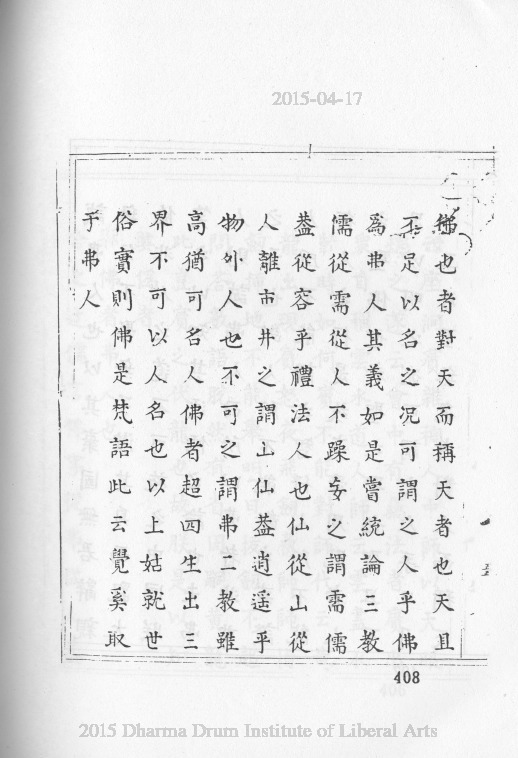 2015-04-17
佛也者對天而稱天者也天且
不足以名之况可謂之人乎佛
為弗人其義如是嘗統論三教
儒從需從人不躁妄之謂需儒
葢從容乎禮法人也仙從山從
人離市井之謂山仙葢逍遥乎
物外人也不可之謂弗二教雖
高猶可名人佛者超四生出三
界不可以人名也以上姑就世
俗實則佛是梵語此云覺奚取
乎弗人
408
2015 Dharma Drum Institute of Liberal Arts